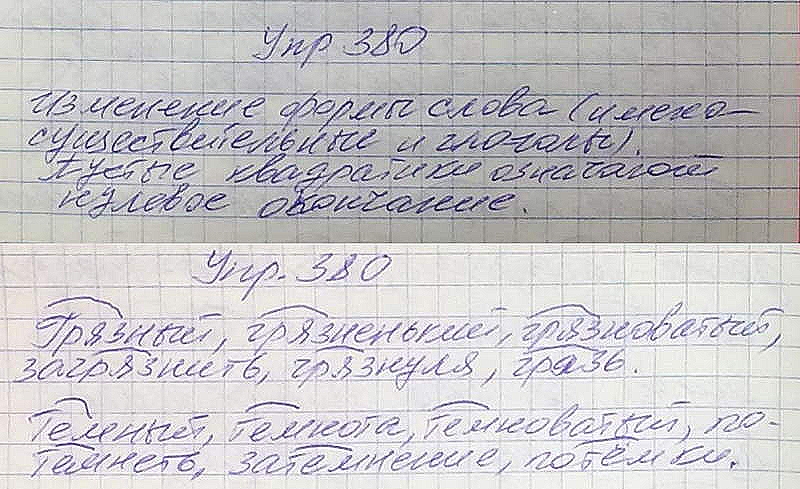 Упр 380
Изменение формы слова (имена-
существительные и глаголы).
Пустые квадратики означают
нулевое окончание.
Упр. 380
Грязный, грязненький, грязноватый,
загрязнить, грязнуля, грязь.
Темный, темнота, темноватый, по-
темнеть, затемнение, потёмки.